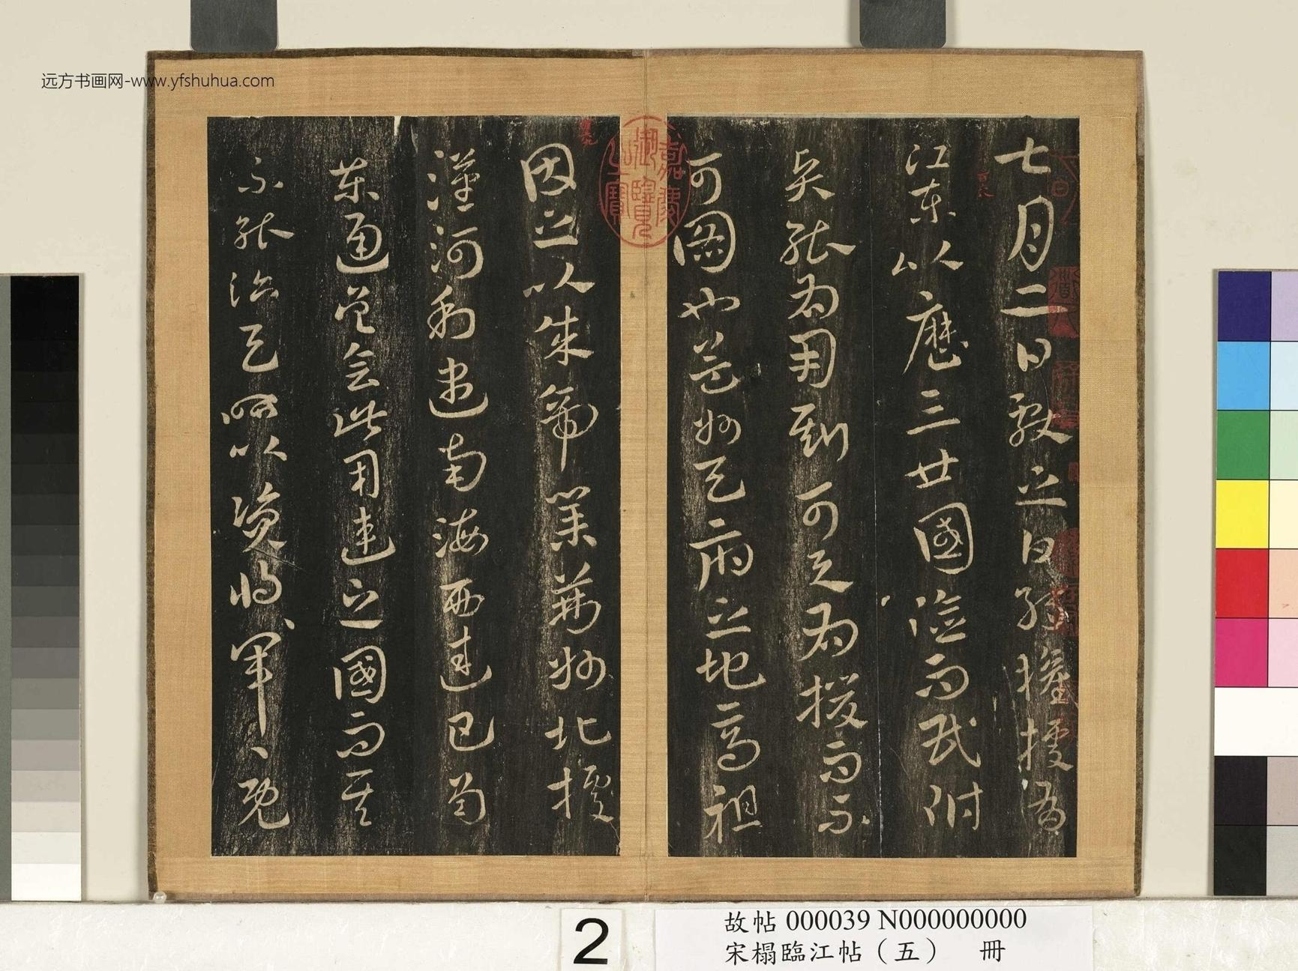 远方书画网-www.yfshuhua.com
七月二日羲之白孫權據有
江東以歷三世國險而民附
賢能為用此可與為援而不
可圖也益州天府之地高祖
因之以成帝業荊州北據
漢河利盡南海西達巴蜀
東通吳會此用武之國而其
不能治天所以資將軍〻既
嘉慶御覽之寶
2
故帖 000039 N000000000
宋榻臨江帖（五） 冊